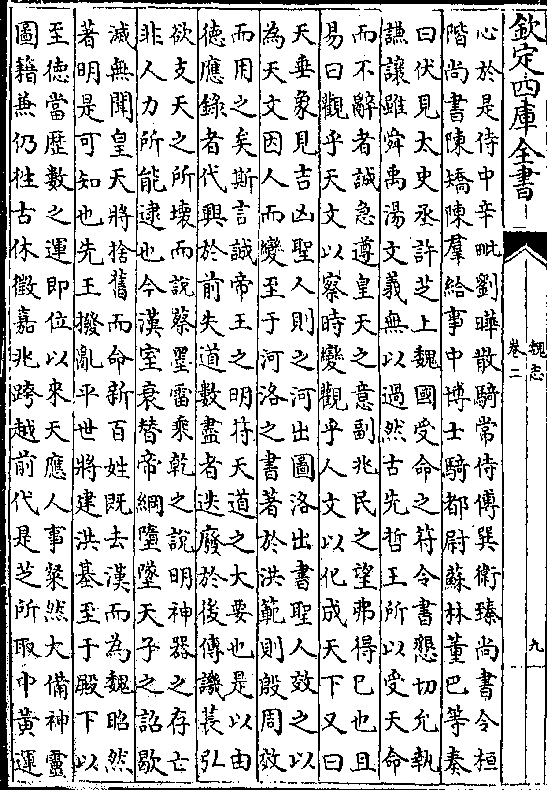 欽定四庫全書
魏志
卷二
九
心於是侍中辛毗劉曄散騎常侍傅巽衛臻尚書令桓
階尚書陳矯陳羣給事中博士騎都尉蘇林董巴等奏
曰伏見太史丞許芝上魏國受命之符令書懇切允執
謙讓雖舜禹湯文義無以過然古先哲王所以受天命
而不辭者誠急遵皇天之意副兆民之望弗得已也且
易曰觀乎天文以察時變觀乎人文以化成天下又曰
天垂象見吉凶聖人則之河出圖洛出書聖人效之以
為天文因人而變至于河洛之書著於洪範則殷周效
而用之矣斯言誠帝王之明符天道之大要也是以由
徳應錄者代興於前失道數盡者迭廢於後傳譏萇弘
欲支天之所壞而說蔡墨雷乘乾之說明神器之存亡
非人力所能逮也今漢室衰替帝綱墮墜天子之詔歇
滅無聞皇天將捨舊而命新百姓既去漢而為魏昭然
著明是可知也先王撥亂平世將建洪基至于殿下以
至徳當厯數之運即位以來天應人事粲然大備神靈
圖籍兼仍徃古休徵嘉兆跨越前代是芝所取中黄運